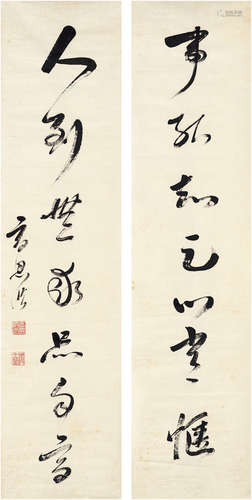 事能知足心常愜
人到無求品自高
高恩洪